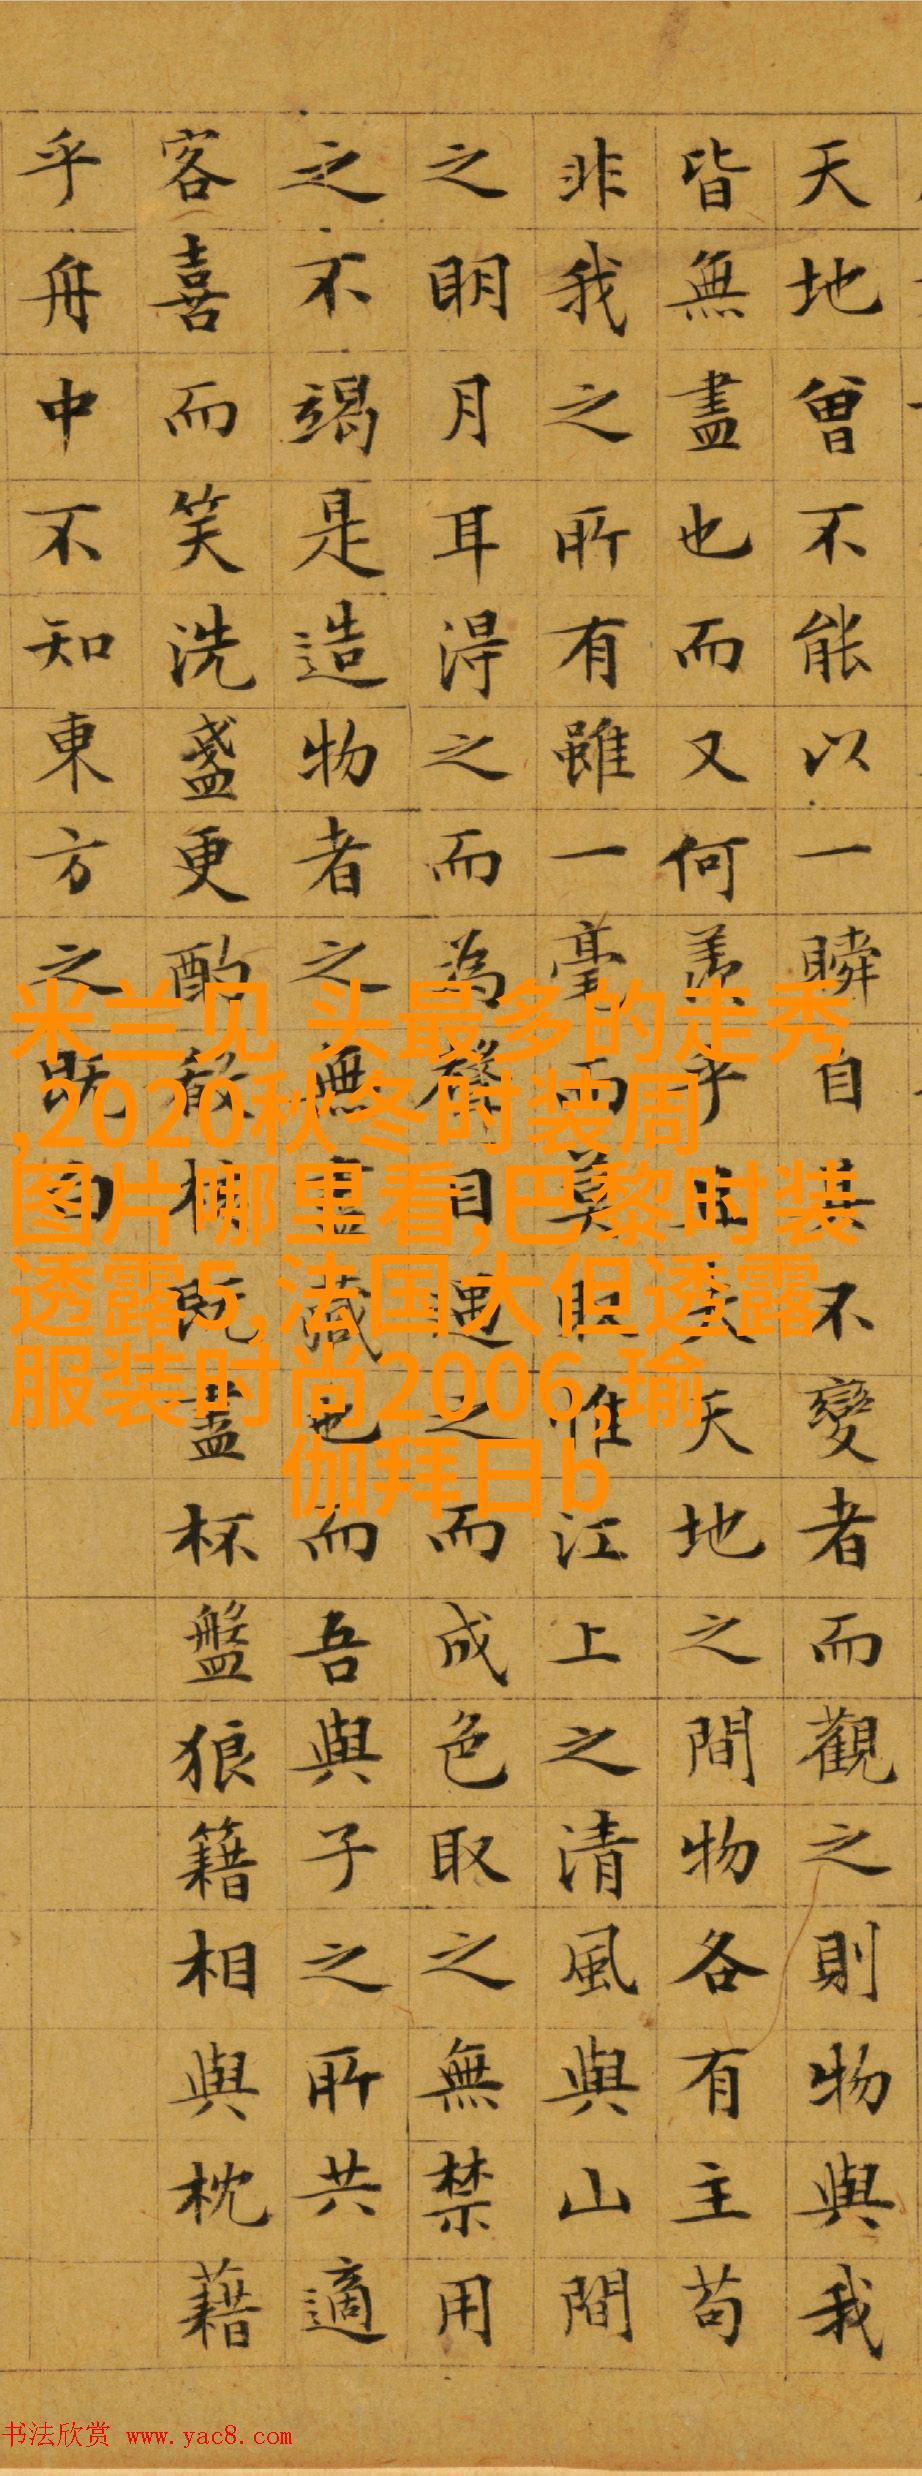 天地曾不能以一瞬自其不變者而觀之則物與我
皆無盡也而又何羡乎且夫天地之間物各有主苟
非我之所有雖一毫而莫取惟江上之清風與山間
之明月耳得之而為聲目遇之而成色取之無禁用
之不竭是造物者之無盡藏也而吾與子之所共適
客喜而笑洗盞更酌核既盡杯盤狼籍相與枕藉
乎舟中不知東方之既白
米兰见 头最多的走秀
,2020秋冬时装周
图片哪里看,巴黎时装
透露5,法国大但透露
服装时尚2006,瑜
伽拜日b
书法欣赏 www.yac8.com